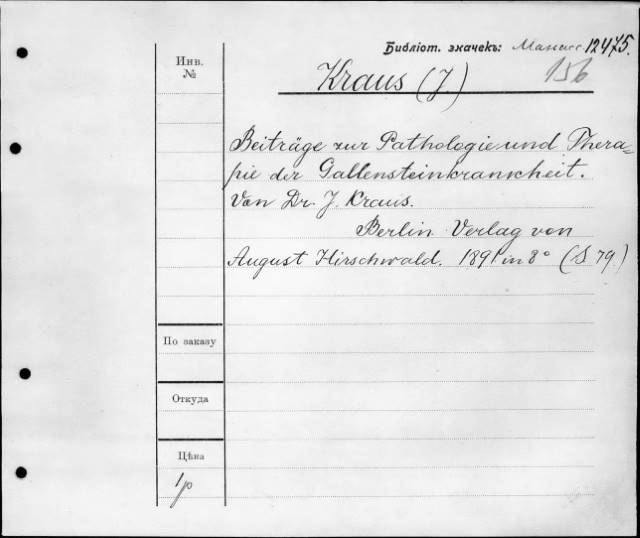 Библіот. значекъ: Манасс 12475.
156
Инв.
№
Kraus (J.)
Beiträge zur Pathologie und Thera-
pie der Gallensteinkrankheit.
Von Dr. J. Kraus.
Berlin Verlag von
August Hirschwald. 1891 in 8° (S 79)
По заказу
Откуда
Цѣна
1/р